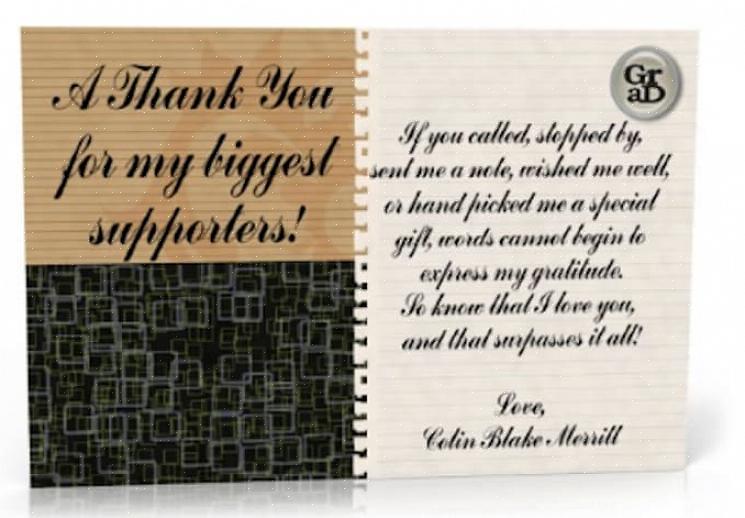 A Thank You
for my biggest
supporters!
Gr
aD
If you called, stopped by,
sent me a note, wished me well,
or hand picked me a special
gift, words cannot begin to
express my gratitude.
So know that I love you,
and that surpasses it all!
Love,
Colin Blake Merrill